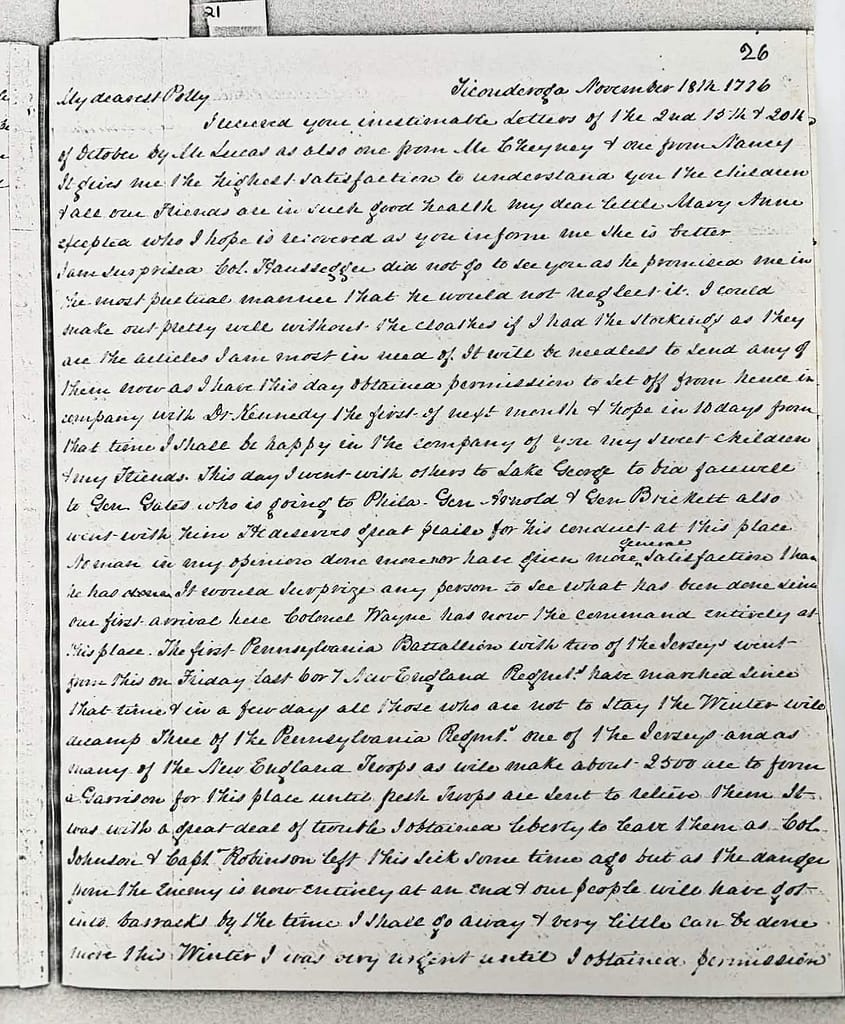 21
26
Ticonderoga November 18th 1776
My dearest Polly
I received your inestimable Letters of the 2nd 15th & 20th
of October by Mr Lucas as also one from Mr Cheyney & one from Nancy
It gives me the highest satisfaction to understand you the children
& all our Friends are in such good health my dear little Mary Anne
excepted who I hope is recovered as you inform me she is better
I am surprised Col. Haussegger did not go to see you as he promised me in
the most puctual manner that he would not neglect it. I could
make out pretty well without the cloathes if I had the stockings as they
are the articles I am most in need of. It will be needless to send any of
them now as I have this day obtained permission to set off from hence in
company with Dr Kennedy the first of next month & hope in 10 days from
that time I shall be happy in the company of you my sweet children
& my Friends. This day I went with others to Lake George to bid farewell
to Gen Gates who is going to Phila. Gen Arnold & Gen Brickett also
went with him He deserves great praise for his conduct at this place
No man in my opinion done more nor have given more general satisfaction than
he has done. It would surprize any person to see what has been done since
our first arrival here Colonel Wayne has now the command entirely at
this place. The first Pennsylvania Battallion with two of the Jerseys went
from this on Friday last 6 or 7 New England Regmts have marched since
that time & in a few days all those who are not to stay the Winter will
decamp Three of the Pennsylvania Regmts. one of the Jerseys and as
many of the New England Troops as will make about 2500 are to form
a Garrison for this place until fresh Troops are sent to relieve them It
was with a great deal of trouble I obtained liberty to leave them as Col.
Johnson & Capt. Robinson left this sick some time ago but as the danger
from the Enemy is now entirely at an end & our people will have got
into barracks by the time I shall go away & very little can be done
more this Winter I was very urgent until I obtained permission